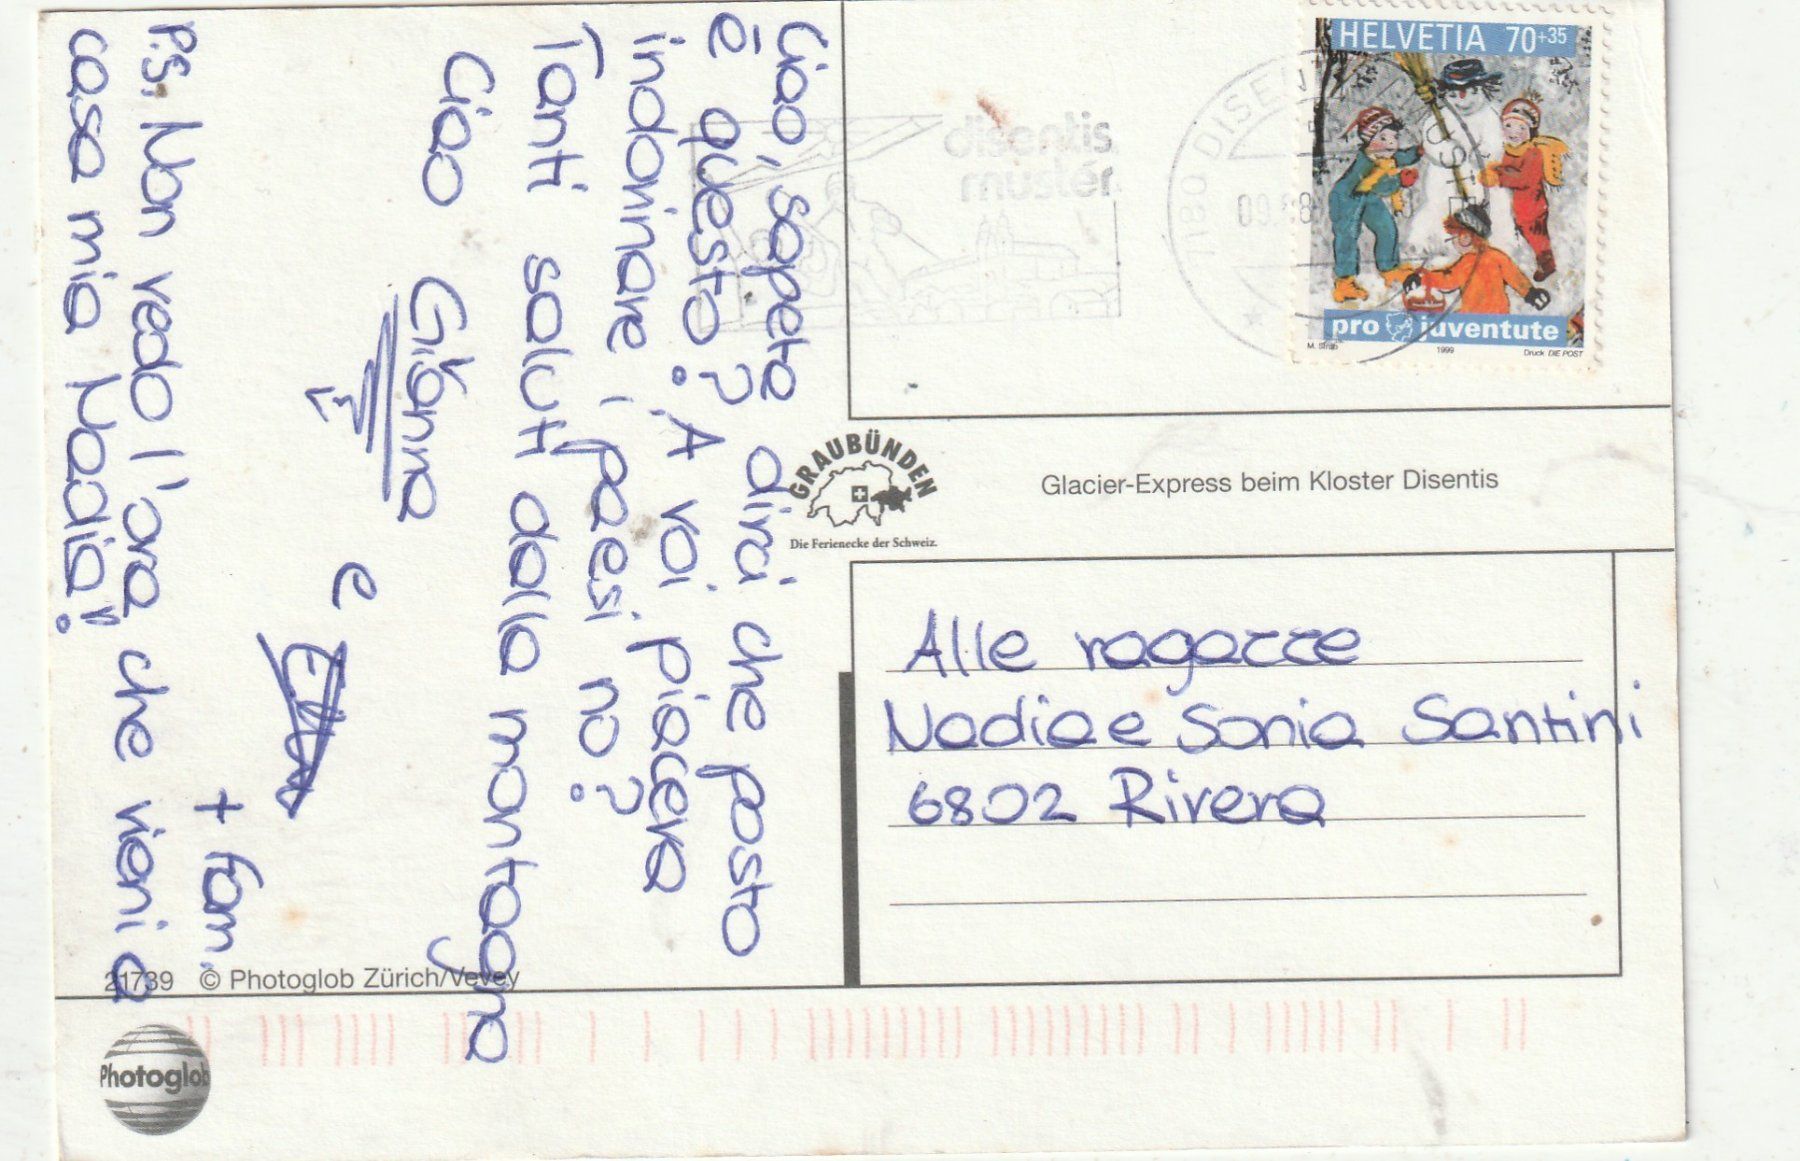 Ciao, sapete dirci che posto
è questo? A voi piaceva
indovinare i paesi no?
Tanti saluti dalla montagna
Ciao Gianna e
+ fam.
P.S. Non vedo l'ora che vieni a
casa mia Nadia!
disentis
mustér
7180 DISENTIS/MUSTER
HELVETIA 70+35
pro juventute
1999
Druck DIE POST
GRAUBÜNDEN
Die Ferienecke der Schweiz.
Glacier-Express beim Kloster Disentis
Alle ragazze
Nadia e Sonia Santini
6802 Rivera
21739 © Photoglob Zürich/Vevey
Photoglob